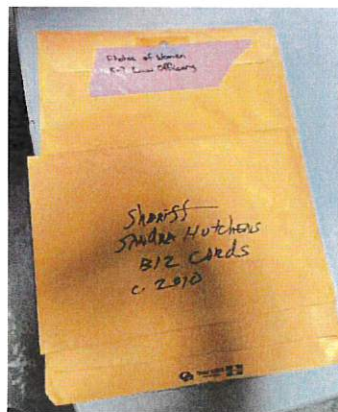 Photos of Women
Law Officers
Sheriff
Sandra Hutchens
Biz Cards
c. 2010